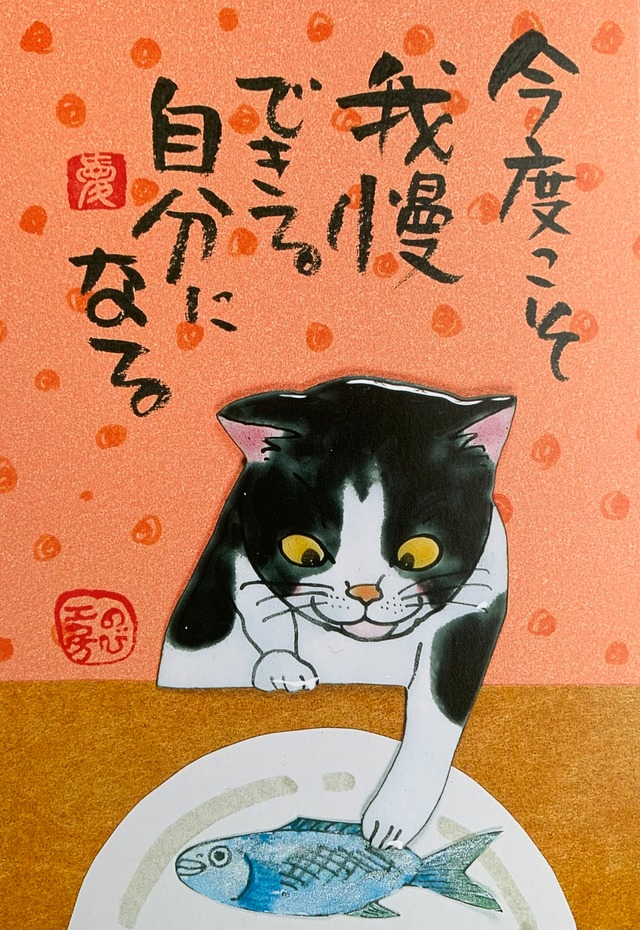 今度こそ
我慢
できる
自分に
なる
慶
のび
工房